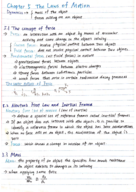 Chapter 5 The Laws of Motion
Dynamics → mass of the object
↳ forces acting on an object
5.1 The concept of Force
Force : an interaction with an object by means of muscular
activity and some change in the object velocity
Contact Force : involve physical contact between two objects
Field Force : does not involve physical contact between two objects
Fundamental Force : are all field forces
① gravitational forces between objects
② electromagnetic forces between electric charges
③ strong forces between subatomic particles
④ weak forces that arise in certain radioactive decay processes
The vector nature of force
5.2 Newton's First Law and Inertial Frames
Newton's first law of motion (Law of inertia)
→ define a special set of reference frames called inertial frames
→ If an object does not interact with other objects, it is possible to
identify a reference frame in which the object has zero acceleration.
→ when no force acts on an object, the acceleration of the object is
zero.
Force : which causes a change in motion of an object
5.3 Mass
Mass : the property of an object that specifies how much resistance
an object exhibits to changes in its velocity
→ when applying same force